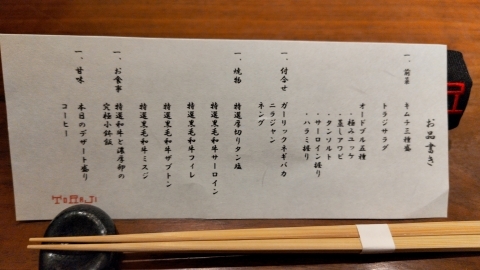 お品書き
一、前菜 キムチ三種盛
トラジサラダ
オードブル五種
・極みユッケ
・蒸しアワビ
・タンソルト
・サーロイン握り
・ハラミ握り
一、付合せ ガーリックネギバカ
ニラジャン
ネング
一、焼物 特選厚切りタン塩
特選黒毛和牛サーロイン
特選黒毛和牛フィレ
特選黒毛和牛ザブトン
特選黒毛和牛ミスジ
一、お食事 特選和牛と濃厚卵の
究極小鉢飯
一、甘味 本日のデザート盛り
コーヒー
TORAJI